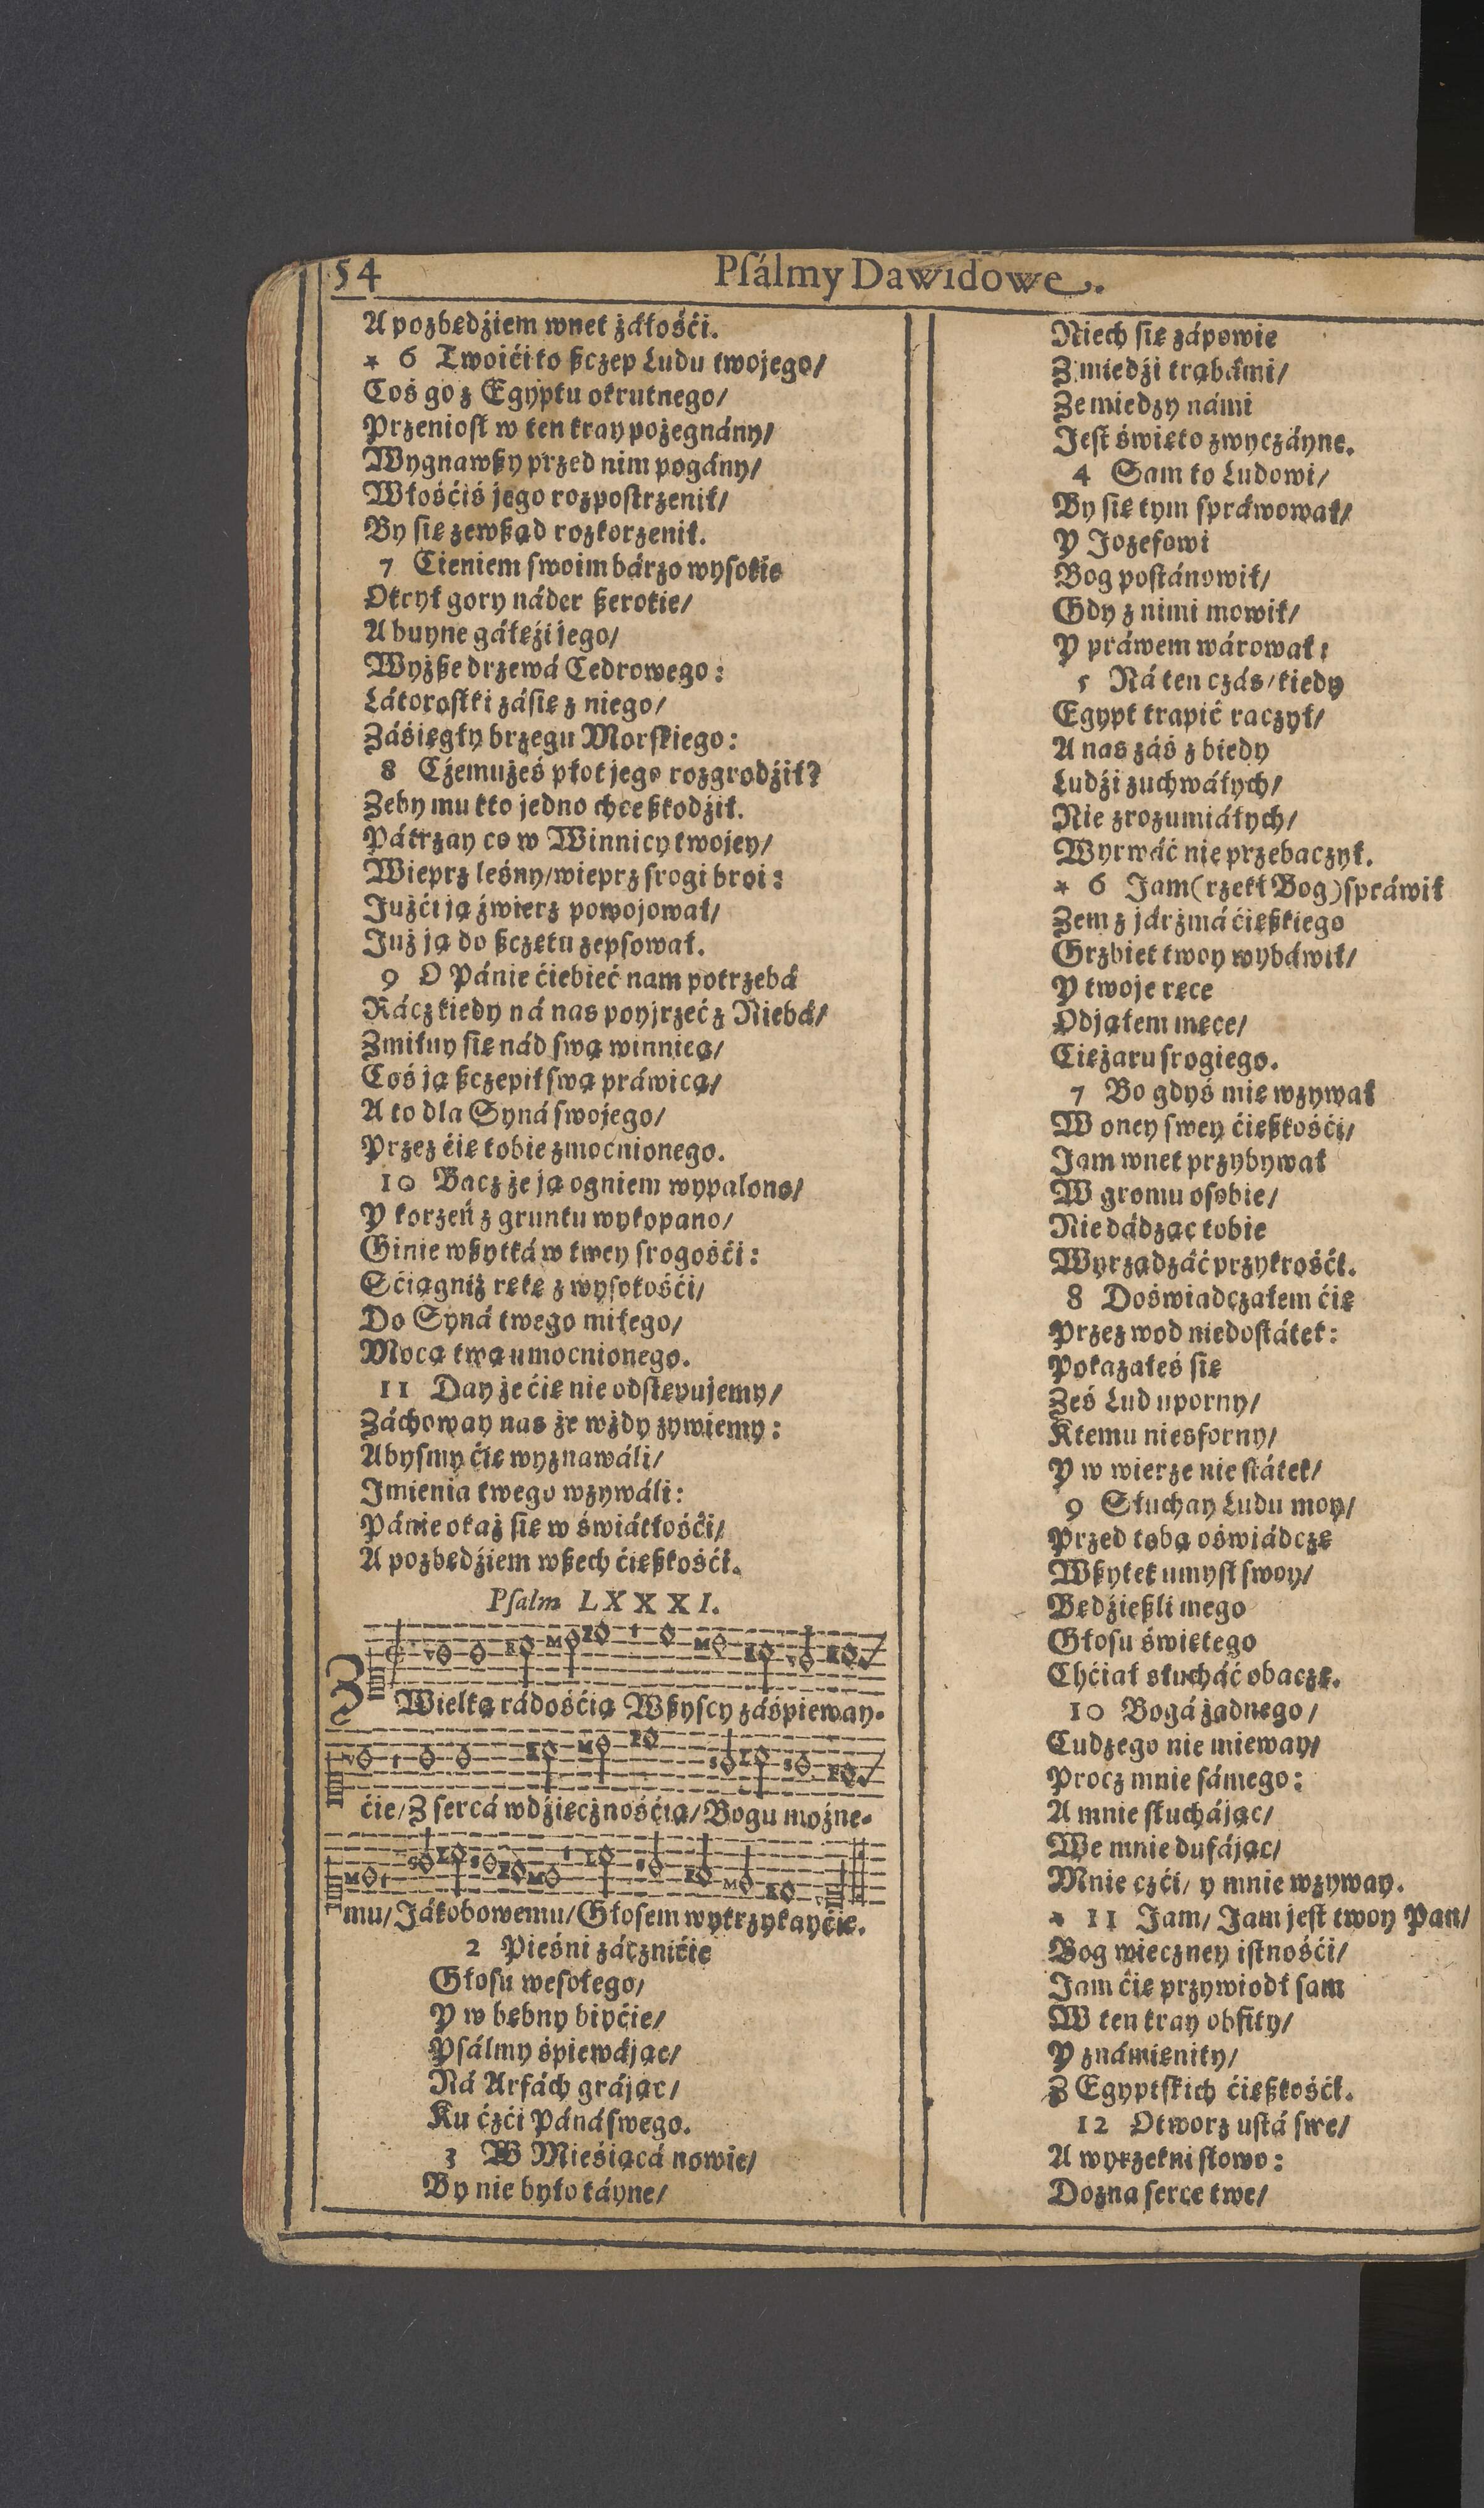 54
Psálmy Dawidowe.
A pozbędźiem wnet żáłośći.
* 6 Twoići to szczep Ludu twojego/
Coś go z Egyptu okrutnego/
Przeniosł w ten kray pożegnány/
Wygnawszy przed nim pogány/
Włośćiś jego rozpostrzenił/
By się zewsząd rozkorzenił.
7 Cieniem swoim bárzo wysokie
Okrył gory náder szerokie/
A buyne gáłęźi jego/
Wyższe drzewá Cedrowego:
Látorostki zásię z niego/
Záśięgły brzegu Morskiego:
8 Cżemużeś płot jego rozgrodźił?
Zeby mu kto jedno chce szkodźił.
Pátrzay co w Winnicy twojey/
Wieprz leśny/wieprz srogi broi:
Jużći ją źwierz powojował/
Już ją do szczętu zepsował.
9 O Pánie ćiebieć nam potrzebá
Rácz kiedy ná nas poyjrzeć z Niebá/
Zmiłuy się nád swą winnicą/
Coś ją szczepił swą práwicą/
A to dla Syná swojego/
Przez ćię tobie zmocnionego.
10 Bacz że ją ogniem wypalono/
Y korzeń z gruntu wykopano/
Ginie wszytká w twey srogośći:
Sćiągniż rękę z wysokośći/
Do Syná twego miłego/
Mocą twą umocnionego.
11 Day że ćię nie odstępujemy/
Záchoway nas że wżdy żywiemy:
Abysmy ćię wyznawáli/
Imienia twego wzywáli:
Pánie okaż się w świátłośći/
A pozbędźiem wszech ćięszkośći.
Psalm LXXXI.
Z Wielką rádośćią Wszyscy záśpieway-
ćie/Z sercá wdźięcżnośćią/Bogu możne-
mu/Jákobowemu/Głosem wykrzykayćie.
2 Pieśni zácznićie
Głosu wesołego/
Y w bębny biyćie/
Psálmy śpiewájąc/
Ná Arfách grájąc/
Ku ćzći Páná swego.
3 W Mieśiącá nowie/
By nie było táyne/
Niech się zápowie
Z miedźi trąbámi/
Ze miedzy námi
Jest święto zwyczáyne.
4 Sam to Ludowi/
By się tym spráwował/
Y Jozefowi
Bog postánowił/
Gdy z nimi mowił/
Y práwem wárował:
5 Ná ten czás/kiedy
Egypt trapić raczył/
A nas záś z biedy
Ludźi zuchwáłych/
Nie zrozumiáłych/
Wyrwáć nie przebaczył.
* 6 Jam(rzekł Bog)spráwił
Zem z járzmá ćięszkiego
Grzbiet twoy wybáwił/
Y twoje ręce
Odjąłem męce/
Ciężaru srogiego.
7 Bo gdyś mię wzywał
W oney swey ćięszkośći/
Jam wnet przybywał
W gromu osobie/
Nie dádząc tobie
Wyrządzáć przykrośći.
8 Doświadczałem ćię
Przez wod niedostátek:
Pokazałeś się
Ześ Lud uporny/
Ktemu niesforny/
Y w wierze nie státek/
9 Słuchay Ludu moy/
Przed tobą oświádczę
Wszytek umysł swoy/
Będźieszli mego
Głosu świętego
Chćiał słucháć obaczę.
10 Bogá żadnego/
Cudzego nie mieway/
Procz mnie sámego:
A mnie słuchájąc/
We mnie dufájąc/
Mnie czći/ y mnie wzyway.
* 11 Jam/ Jam jest twoy Pan/
Bog wieczney istnośći/
Jam ćię przywiodł sam
W ten kray obfity/
Y známienity/
Z Egyptskich ćięszkośći.
12 Otworz ustá swe/
A wyrzekni słowo:
Dozna serce twe/